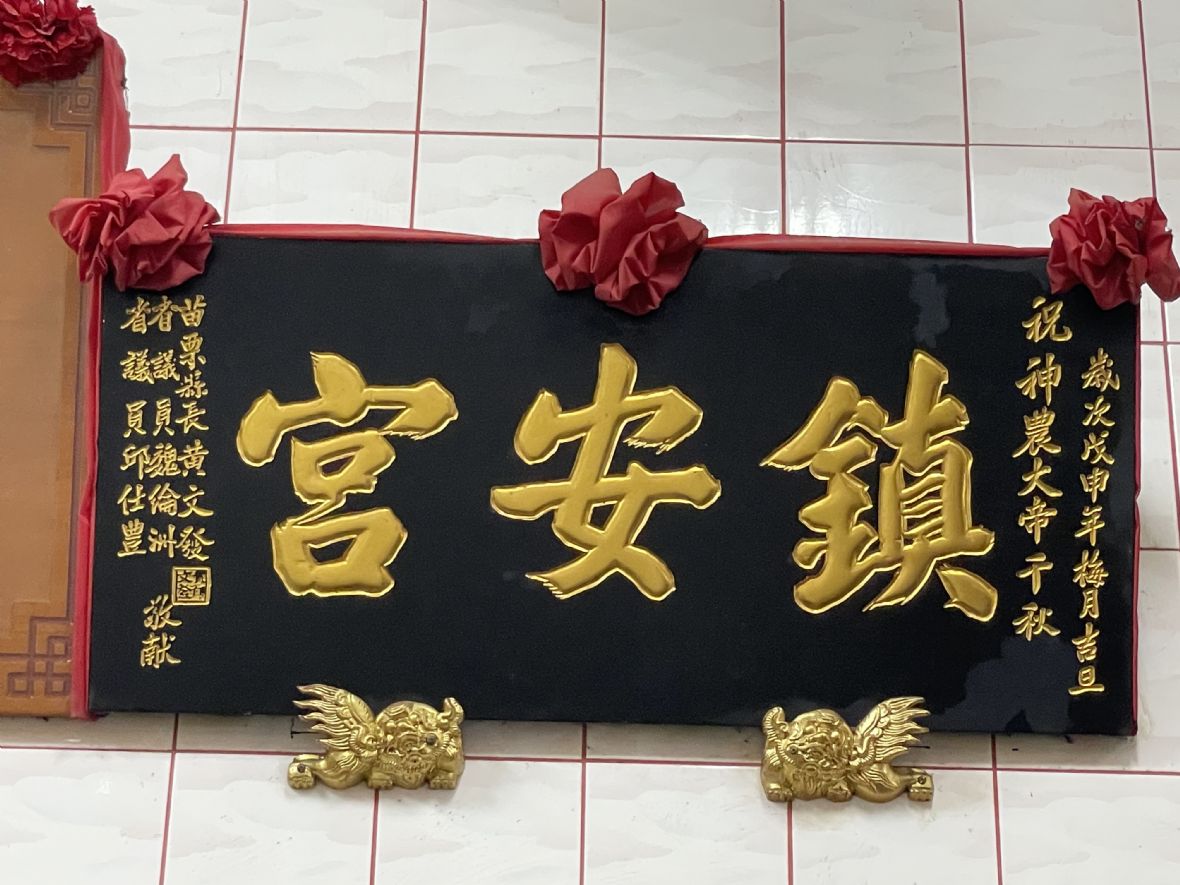 歲次戊申年梅月吉旦
祝神農大帝千秋
鎮安宮
苗栗縣長黃文發
省議員魏綸洲
省議員邱仕豐
敬献